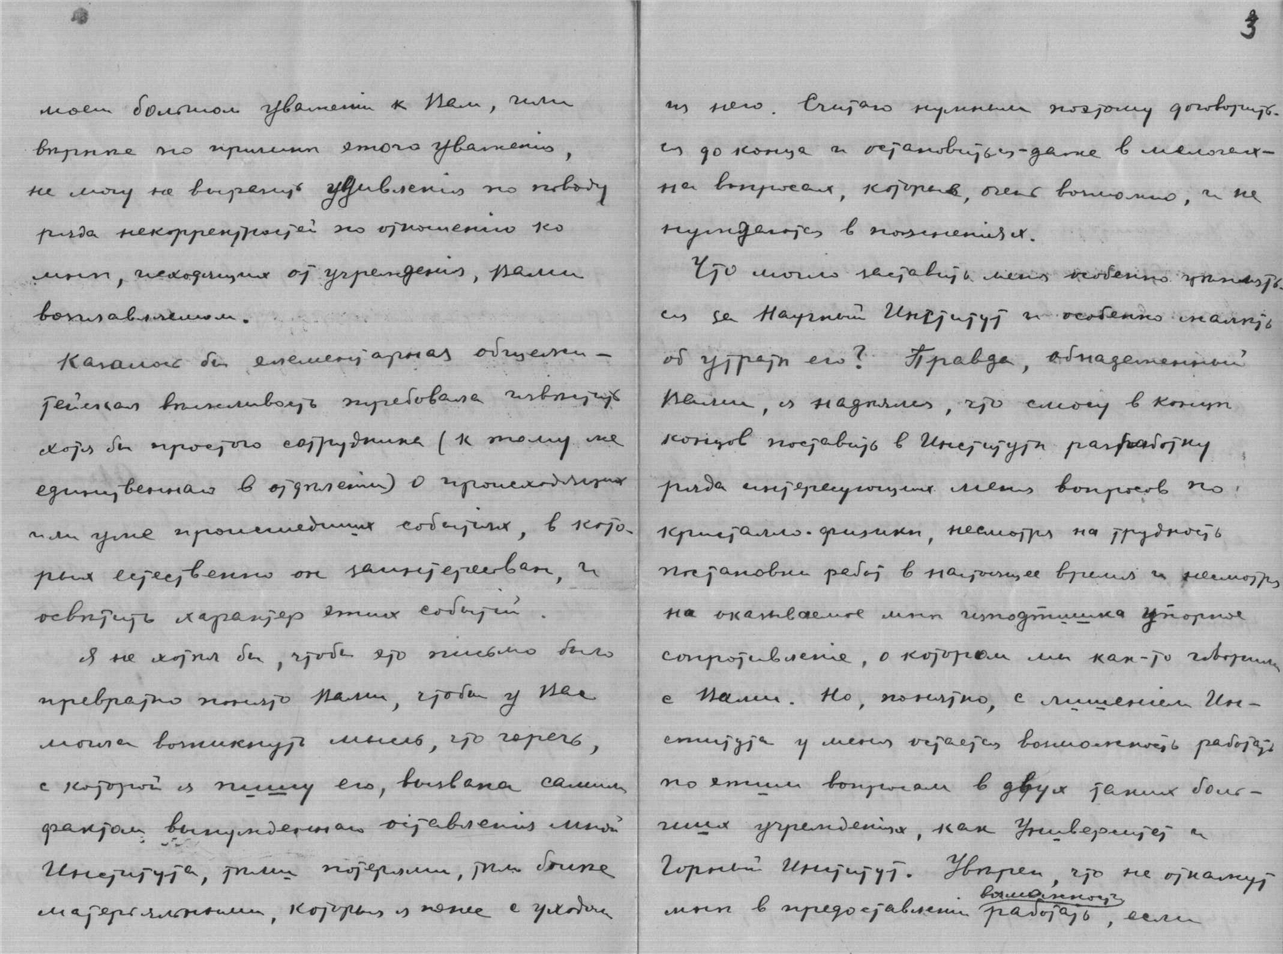 моем большом уважении к Вам, или
вѣрнѣе по причинѣ этого уваженія,
не могу не выразить удивленія по поводу
ряда некорректностей по отношенію ко
мнѣ, исходящих от учрежденія, Вами
возглавляемом.
Казалось бы элементарная общежи-
тейская вѣжливость требовала извѣстить
хотя бы простого сотрудника (к тому же
единственнаго в отдѣленіи) о происходящих
или уже происшедших событіях, в кото-
рых естественно он заинтересован, и
освѣтить характер этих событій.
Я не хотѣл бы, чтобы это письмо было
превратно понято Вами, чтобы у Вас
могла возникнуть мысль, что горечь,
с которой я пишу его, вызвана самим
фактом вынужденнаго оставленія мной
Института, тѣми потерями, тѣм болѣе
матеріяльными, которыя я понес с уходом
3
из него. Считаю нужным поэтому договорить-
ся до конца и остановиться - даже в мелочах -
на вопросах, которые, очень возможно, и не
нуждаются в поясненіях.
Что могло заставить меня особенно цѣплять-
ся за Научный Институт и особенно жалѣть
об утратѣ его? Правда, обнадеженный
Вами, я надѣялся, что смогу в концѣ
концов поставить в Институтѣ разработку
ряда интересующих меня вопросов по
кристалло-физикѣ, несмотря на трудность
постановки работ в настоящее время и несмотря
на оказываемое мнѣ изподтишка упорное
сопротивленіе, о котором мы как-то говорили
с Вами. Но, понятно, с лишеніем Ин-
ститута у меня остается возможность работать
по этим вопросам в двух таких боль-
ших учрежденіях, как Университет и
Горный Институт. Увѣрен, что не откажут
мнѣ в предоставленіи возможности работать, если